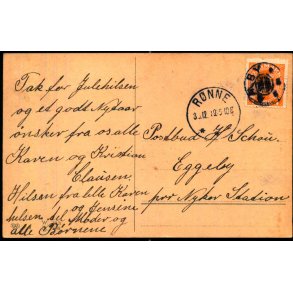 Tak for Julehilsen
og et godt Nytaar
ønsker fra os alle
Karen og Kristian
Clausen.
Hilsen fra lille Karen
og Jensine
hilsen til Moder og
alle Børnene
RØNNE
Postbud H. Schou.
Eggeby
per Nyker Station